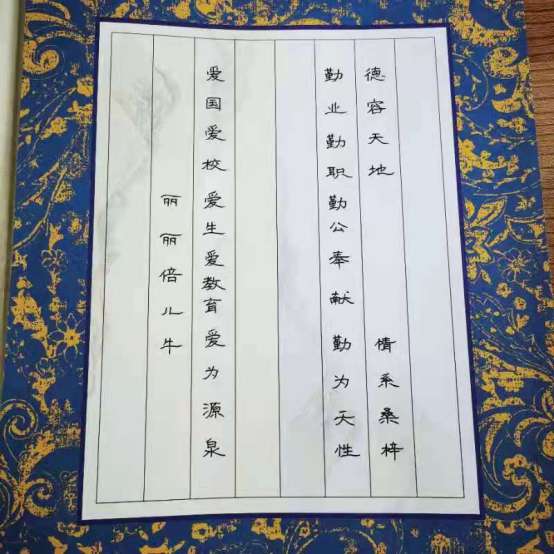 德容天地 情系桑梓
勤业勤职勤公奉献勤为天性
爱国爱校爱生爱教育爱为源泉
丽丽倍儿牛